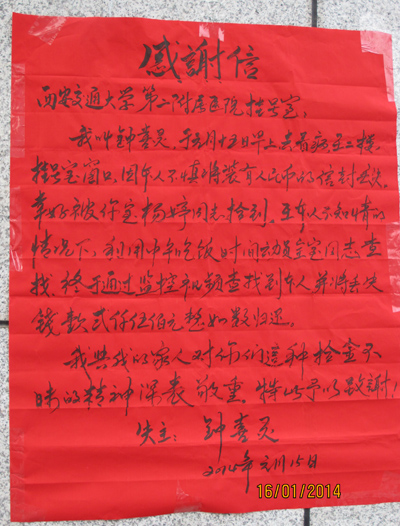 感謝信
西安交通大学第二附属医院挂号室：
我叫钟喜灵，于元月十五日早上去看病至二楼
挂号室窗口，因本人不慎将装有人民币的信封丢失。
幸好被你室杨婷同志拾到。在本人不知情的
情况下，利用中午吃饭时间动员全室同志查
找，终于通过监控视频查找到本人并将丢失
钱款弍仟伍佰元整如数归还。
我与我的家人对你们这种拾金不
昧的精神深表敬重。特此予以致謝！
失主：钟喜灵
2014年元月15日
16/01/2014